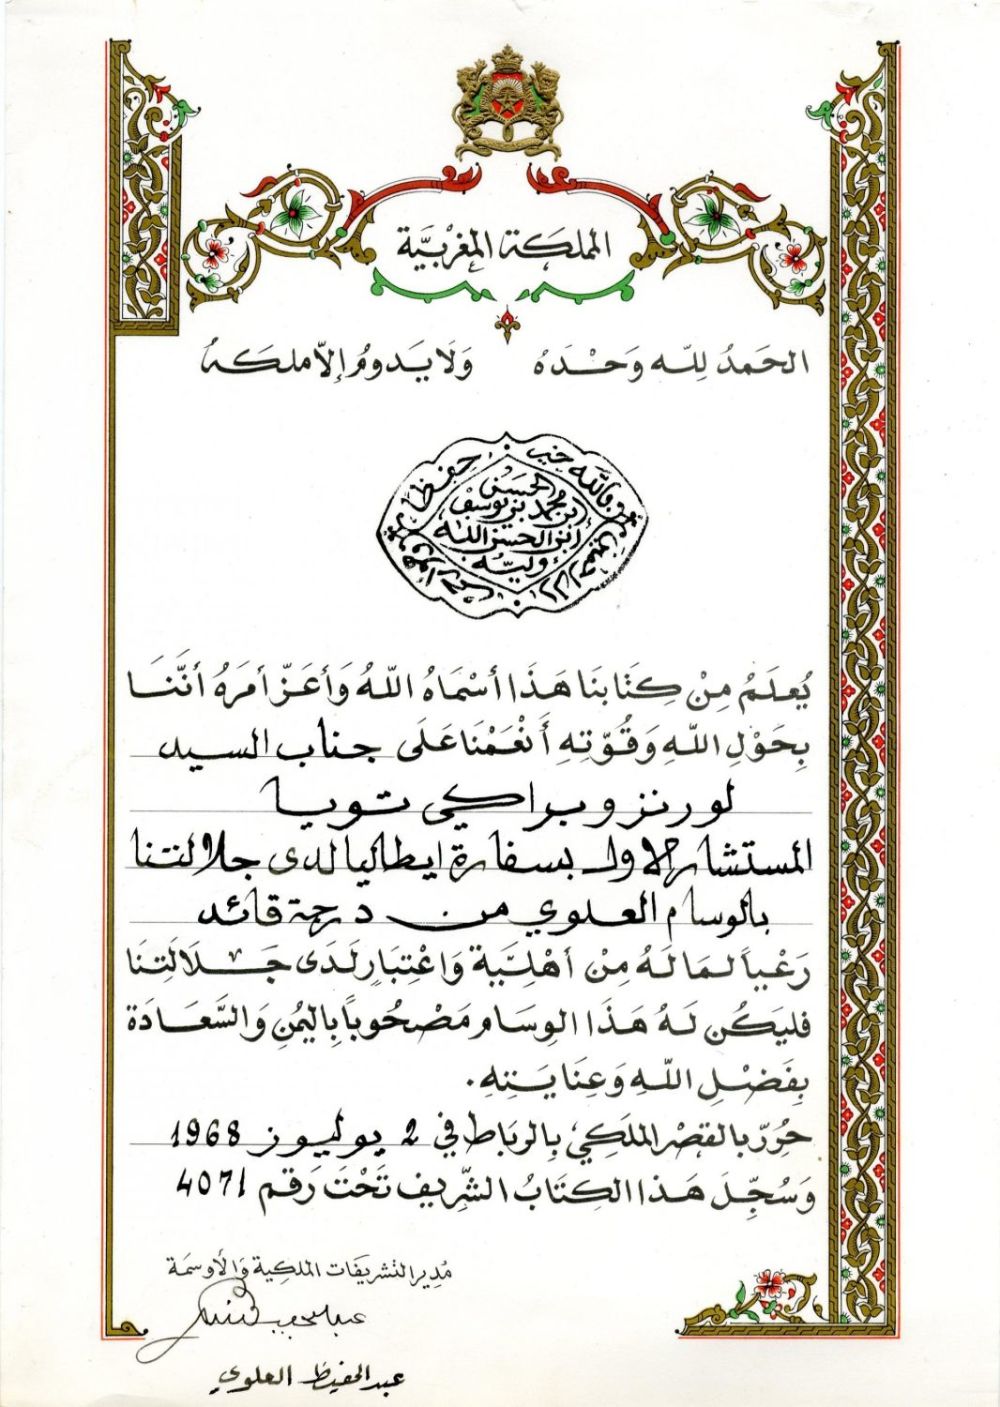 المملكة المغربية
الحَمدُ لِلّه وَحْدَهُ وَلَا يَدومُ إلاّ ملكَهُ
الحسن
ابن محمد بن يوسف
ابن الحسن الله
وليه
يُعلَمُ مِنْ كِتَابنَا هَذَا أسْمَاهُ اللّهُ وَأعَزّ أمرَهُ أنَّنَا
بِحَوْلِ اللّهِ وَقُوّتِهِ أَنْعَمْنَا عَلَى جناب السيد
لورنزو براكي تويا
المستشار الاول بسفارة ايطاليا لدى جلالتنا
بالوسام العلوي من درجة قائد
رَعْياً لمَا لَهُ مِنْ أهْلِيَّة وَاعْتِبَارٍ لَدَى جَلَالَتِنَا
فليَكُن لَهُ هَذَا الوِسَام مَصْحُوباً بِاليُمْنِ وَالسَّعَادَة
بِفَضْلِ اللّهِ وَعِنَايَتِهِ.
حُرِّرَ بالقَصْر الملَكِي بِالرِبَاط في 2 يوليوز 1968
وَسُجِّلَ هَذَا الكِتَابُ الشَّرِيف تَحْتَ رَقم 4071
مُدِير التشريفَات الملكِية وَالأوسمَة
عبد الحفيظ العلوي